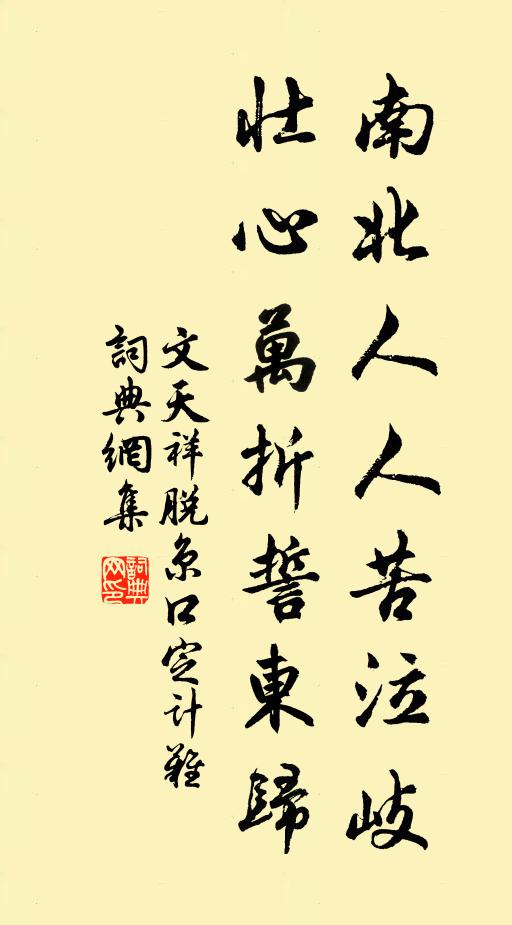 南北人人苦泣岐
壯心萬折誓東歸
文天祥脫京口定計難
詞典網集
詞典
网印